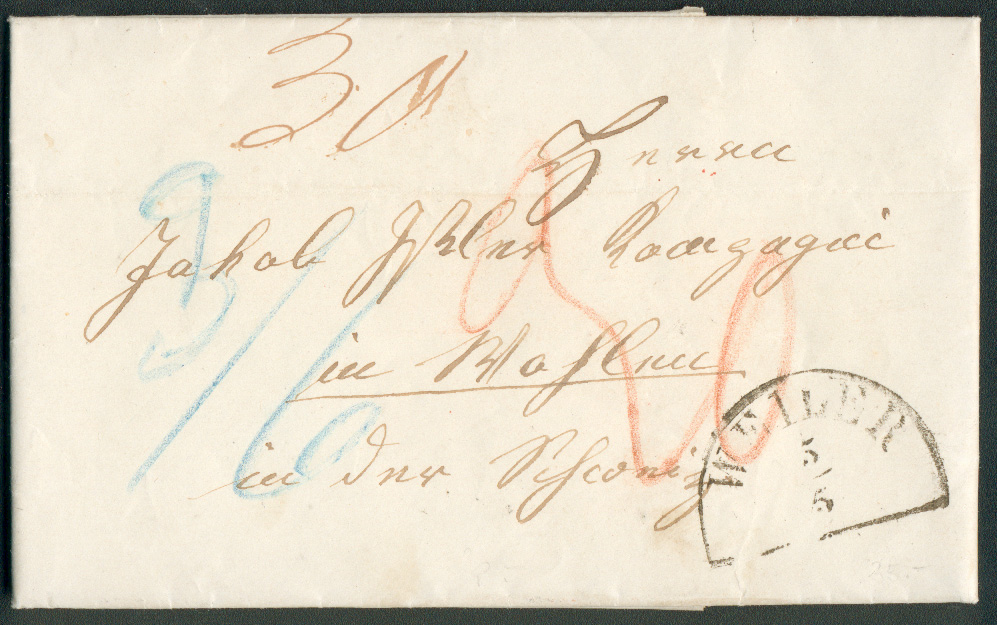 3
Herrn
Jakob Isler Kompagni
in Wohlen
in der Schweiz
WEILER
5
5
3/6
25.-